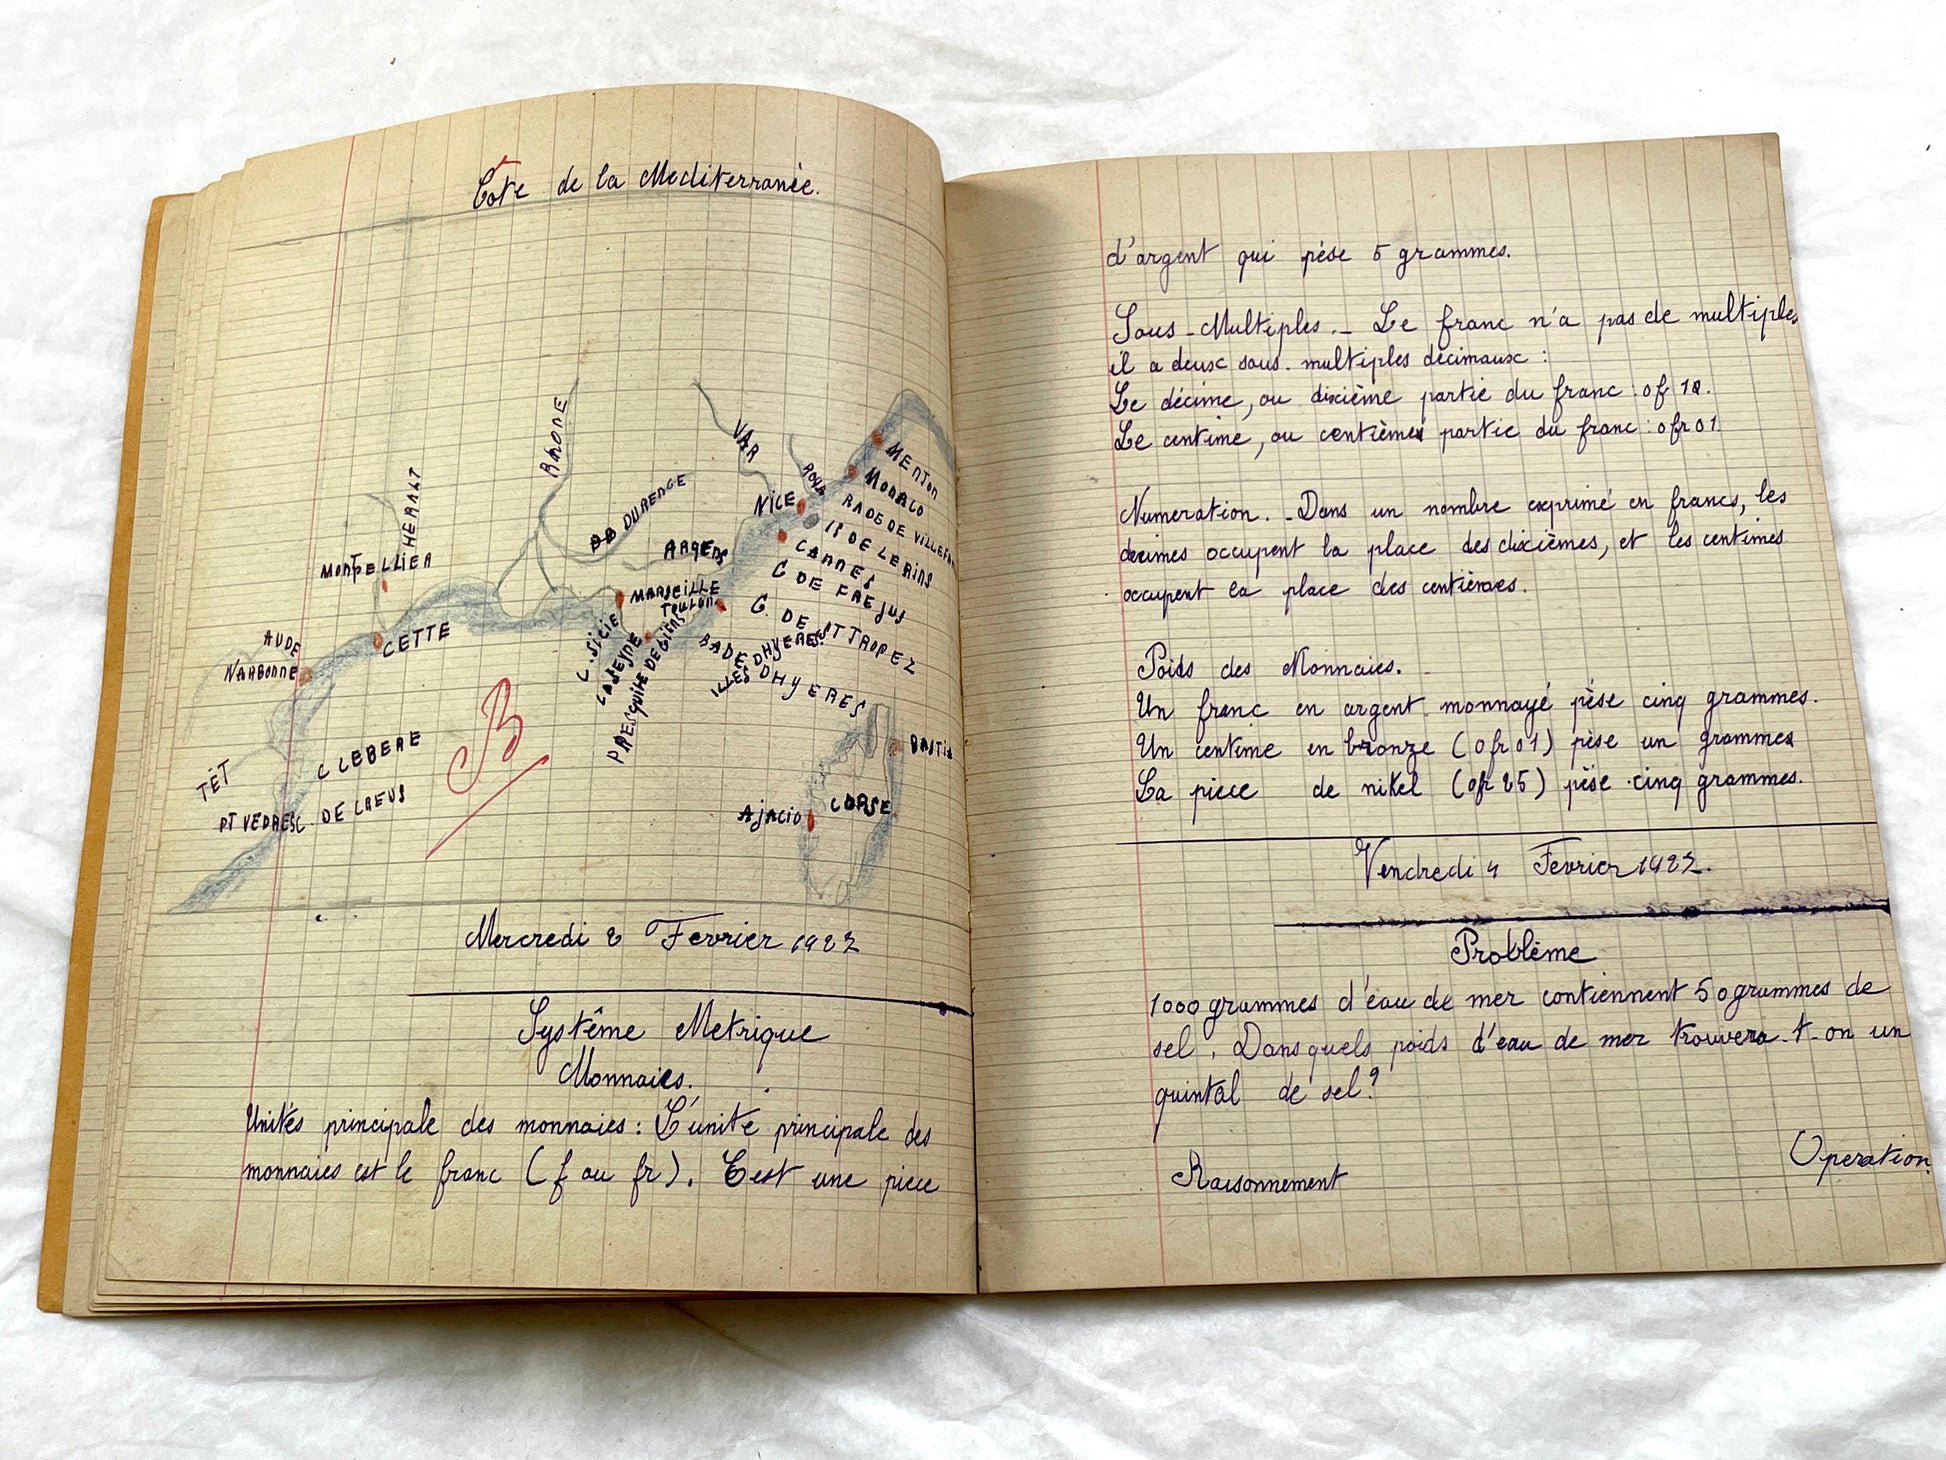 Côte de la Mediterranée.
RHONE
VAR
ROYA
HERAULT
DURENCE
MENTON
MONACO
NICE
RADE DE VILLEFRA
IS DE LERINS
ARGENS
CANNES
MONTPELLIER
G DE FREJUS
MARSEILLE
TOULON
G. DE ST TROPEZ
C. SICIE
LASEYNE
PRESQUILE DE GIENS
RADE DHYERES
ILLES DHYERES
CETTE
AUDE
NARBONNE
B
BASTIA
C LEBERE
TÉT
AJACIO
CORSE
PT VEDRES C. DE CREUS
Mercredi 2 Fevrier 1922
Système Metrique
Monnaies.
Unités principale des monnaies : L'unité principale des
monnaies est le franc (f ou fr). C'est une piece
d'argent qui pèse 5 grammes.
Sous-Multiples. _ Le franc n'a pas de multiples
il a deux sous-multiples décimaux :
Le décime, ou dixième partie du franc : 0f 10.
Le centime, ou centième partie du franc : 0fr01
Numeration. _ Dans un nombre exprimé en francs, les
decimes occupent la place des dixièmes, et les centimes
occupent la place des centièmes.
Poids des Monnaies.
Un franc en argent monnayé pèse cinq grammes.
Un centime en bronze (0fr01) pèse un grammes
La piece de nikel (0fr25) pèse cinq grammes.
Vendredi 4 Fevrier 1922.
Problème
1000 grammes d'eau de mer contiennent 50 grammes de
sel. Dans quels poids d'eau de mer trouvera-t-on un
quintal de sel?
Operation.
Raisonnement